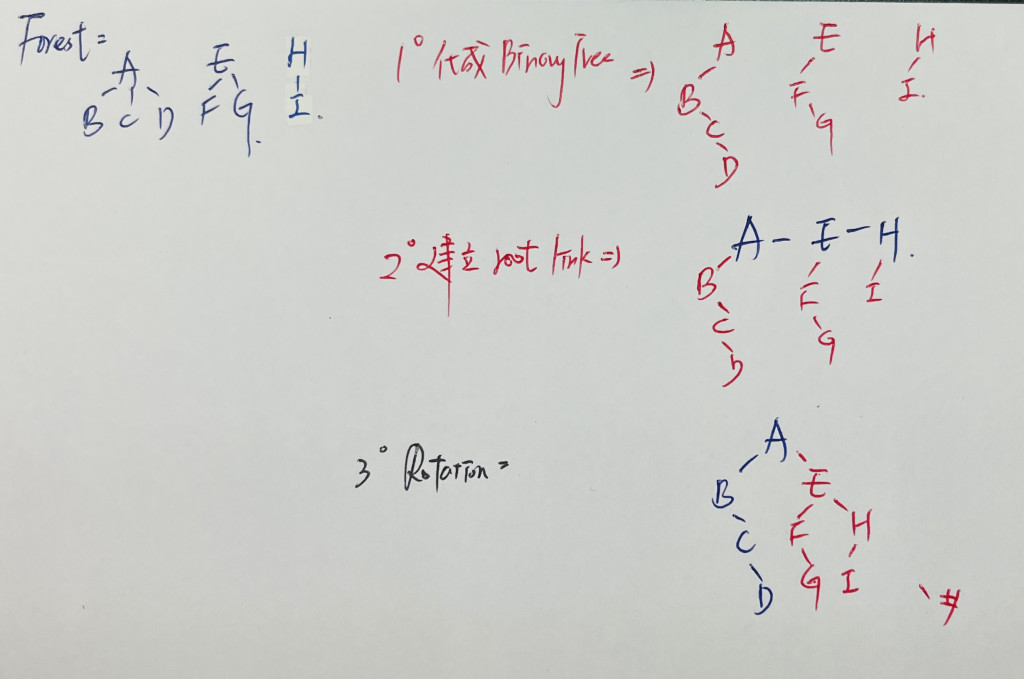 Forest =
A E H
B C D F G I
1° 化成 Binary Tree ⇒
A E H
B F I
C G
D
2° 建立 root link ⇒
A - E - H
B F I
C G
D
3° Rotation =
A
B E
C F H
D G I